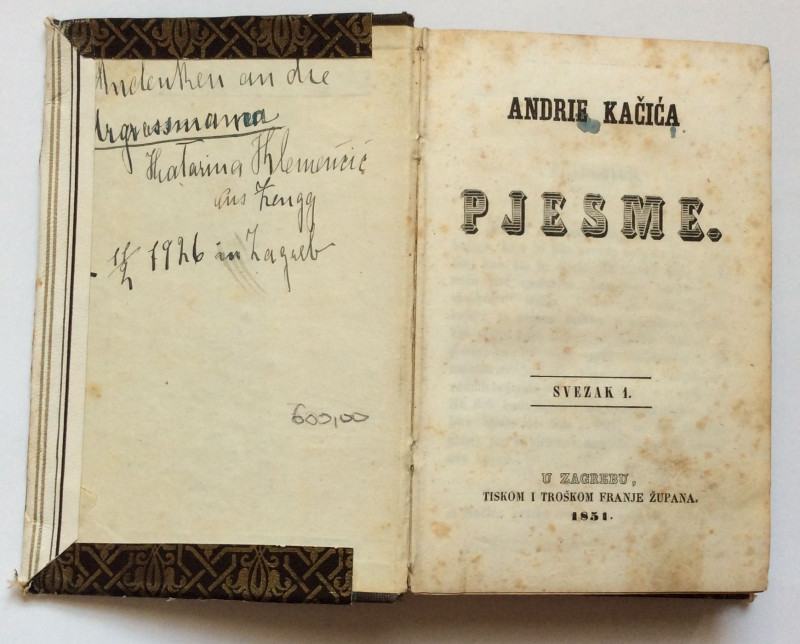 Andenken an die
Urgrossmama
Katarina Klemenčić
aus Zengg
11/2 1926 in Zagreb
600,00
ANDRIE KAČIĆA
PJESME.
SVEZAK 1.
U ZAGREBU,
TISKOM I TROŠKOM FRANJE ŽUPANA.
1851.